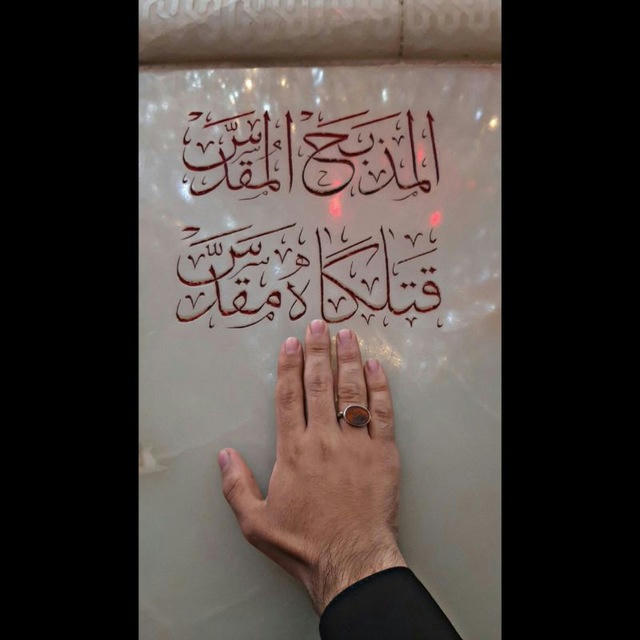 المذبح المقدس
قتلگاه مقدس